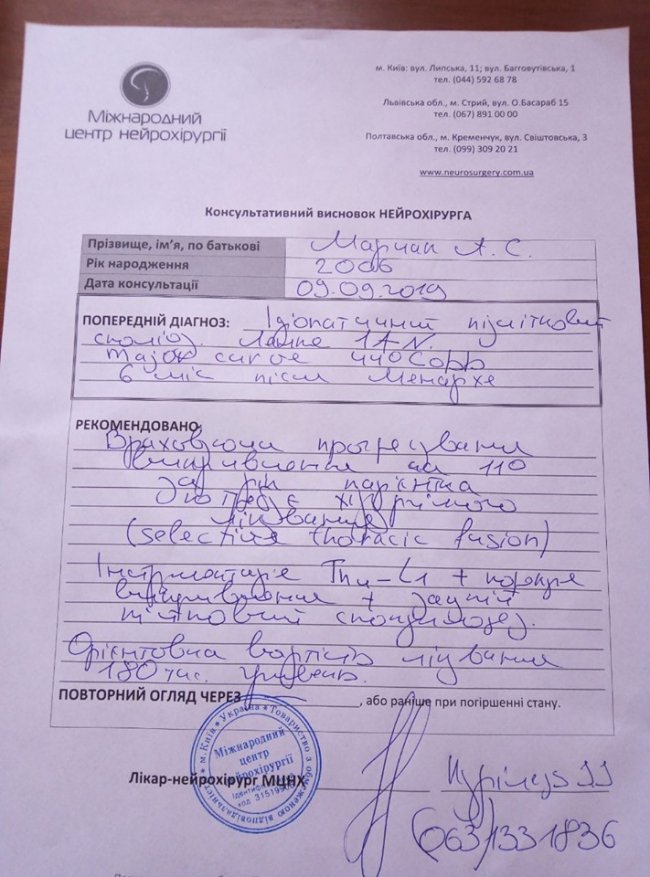 Міжнародний
центр нейрохірургії
м. Київ: вул. Липська, 11; вул. Багговутівська, 1
тел. (044) 592 68 78
Львівська обл., м. Стрий, вул. О.Басараб 15
тел. (067) 891 00 00
Полтавська обл., м. Кременчук, вул. Свіштовська, 3
тел. (099) 309 20 21
www.neurosurgery.com.ua
Консультативний висновок НЕЙРОХІРУРГА
Прізвище, ім'я, по батькові А. С.
Рік народження 2006
Дата консультації 09.09.2019
ПОПЕРЕДНІЙ ДІАГНОЗ: Ідіопатичний підлітковий
сколіоз. Ленке 1AN.
Major curve 44° Cobb
6 міс після Менархе
РЕКОМЕНДОВАНО:
Враховуючи прогресування
викривлення на 11°
за рік пацієнтка
потребує хірургічного
лікування
(selective thoracic fusion)
Інструментація Th4-L1 + корекція
викривлення + задній
спондилодез.
Орієнтовна вартість лікування
180 тис. гривень.
ПОВТОРНИЙ ОГЛЯД ЧЕРЕЗ , або раніше при погіршенні стану.
м.Київ * Україна * Товариство з обмеженою відповідальністю
Міжнародний
центр
нейрохірургії
Лікар-нейрохірург МЦНХ
(063)1331836